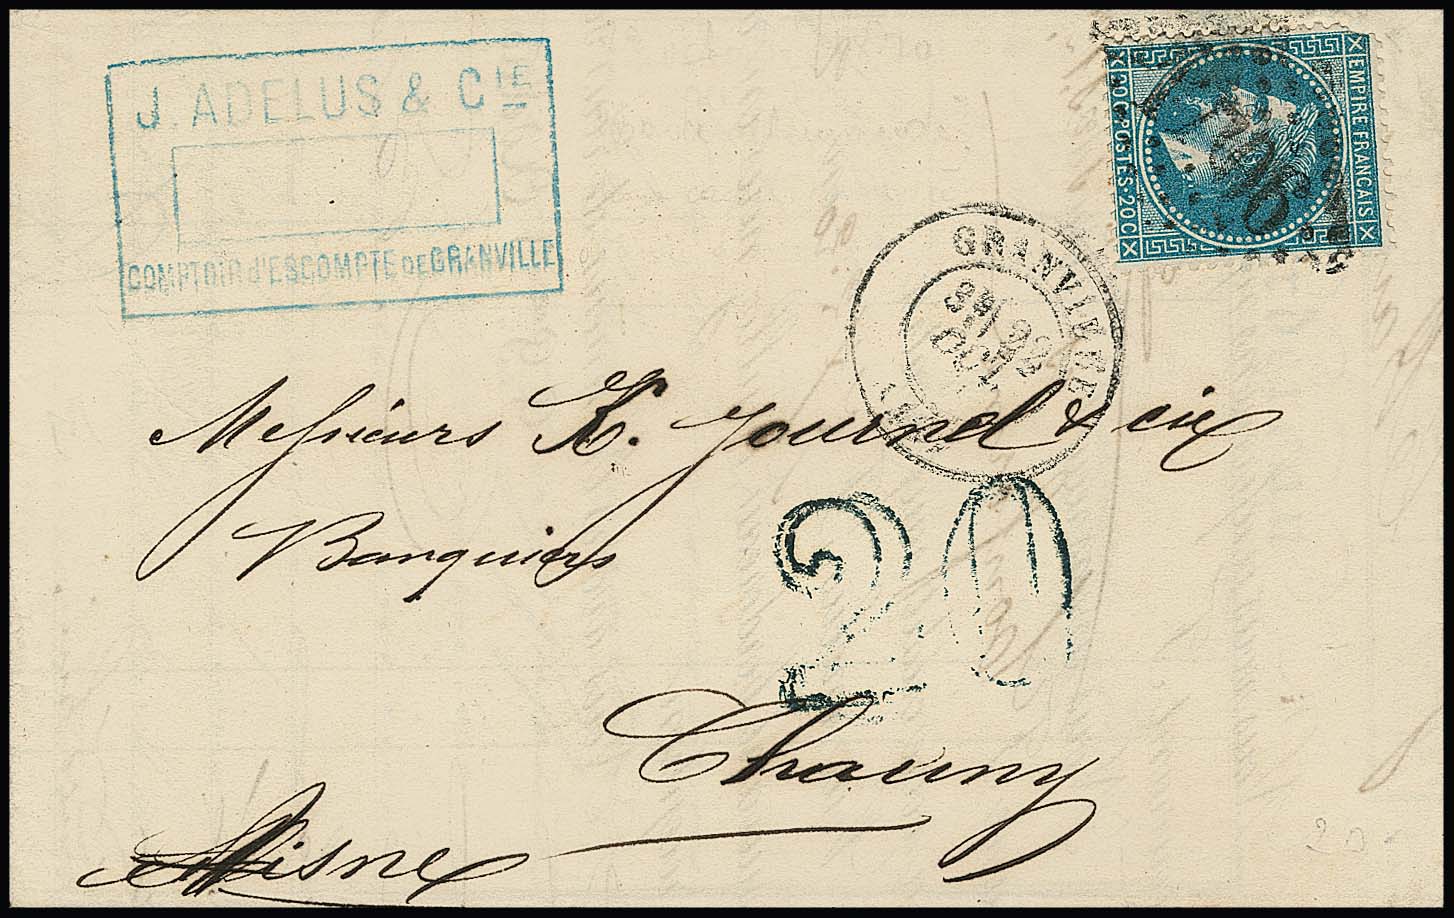 J. ADELUS & CIE
COMPTOIR d'ESCOMPTE DE GRANVILLE
EMPIRE FRANCAIS
20 C POSTES 20 C
GRANVILLE
22
OCT
Messieurs
& cie
Banquiers
20
Chauny
Aisne
20